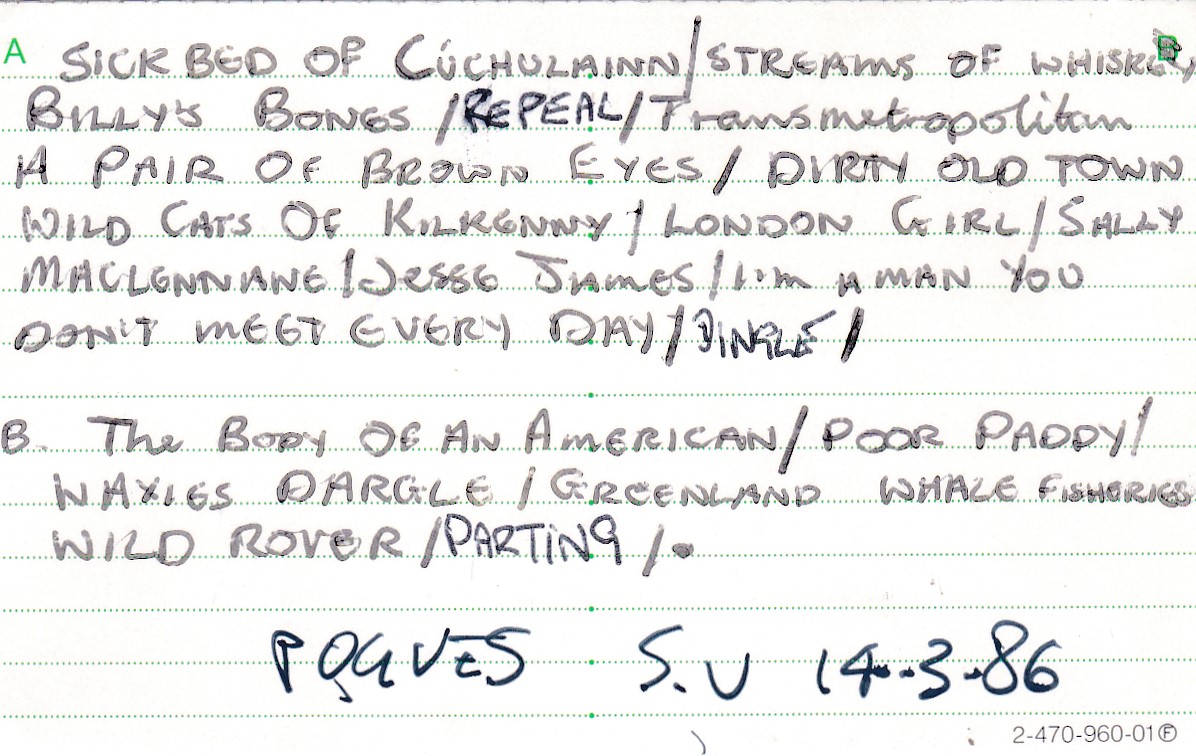 A SICK BED OF CÚCHULAINN/STREAMS OF WHISKEY B
BILLY'S BONES /REPEAL/Transmetropolitan
A PAIR OF BROWN EYES/ DIRTY OLD TOWN
WILD CATS OF KILKENNY/LONDON GIRL/SALLY
MACLENNANE/JESSE JAMES/I'm A MAN YOU
DON'T MEET EVERY DAY/DINGLE/
B. The BODY OF AN AMERICAN/POOR PADDY/
WAXIES DARGLE /GREENLAND WHALE FISHERIES
WILD ROVER/PARTING/.
POGUES S.U 14-3-86
2-470-960-01 F